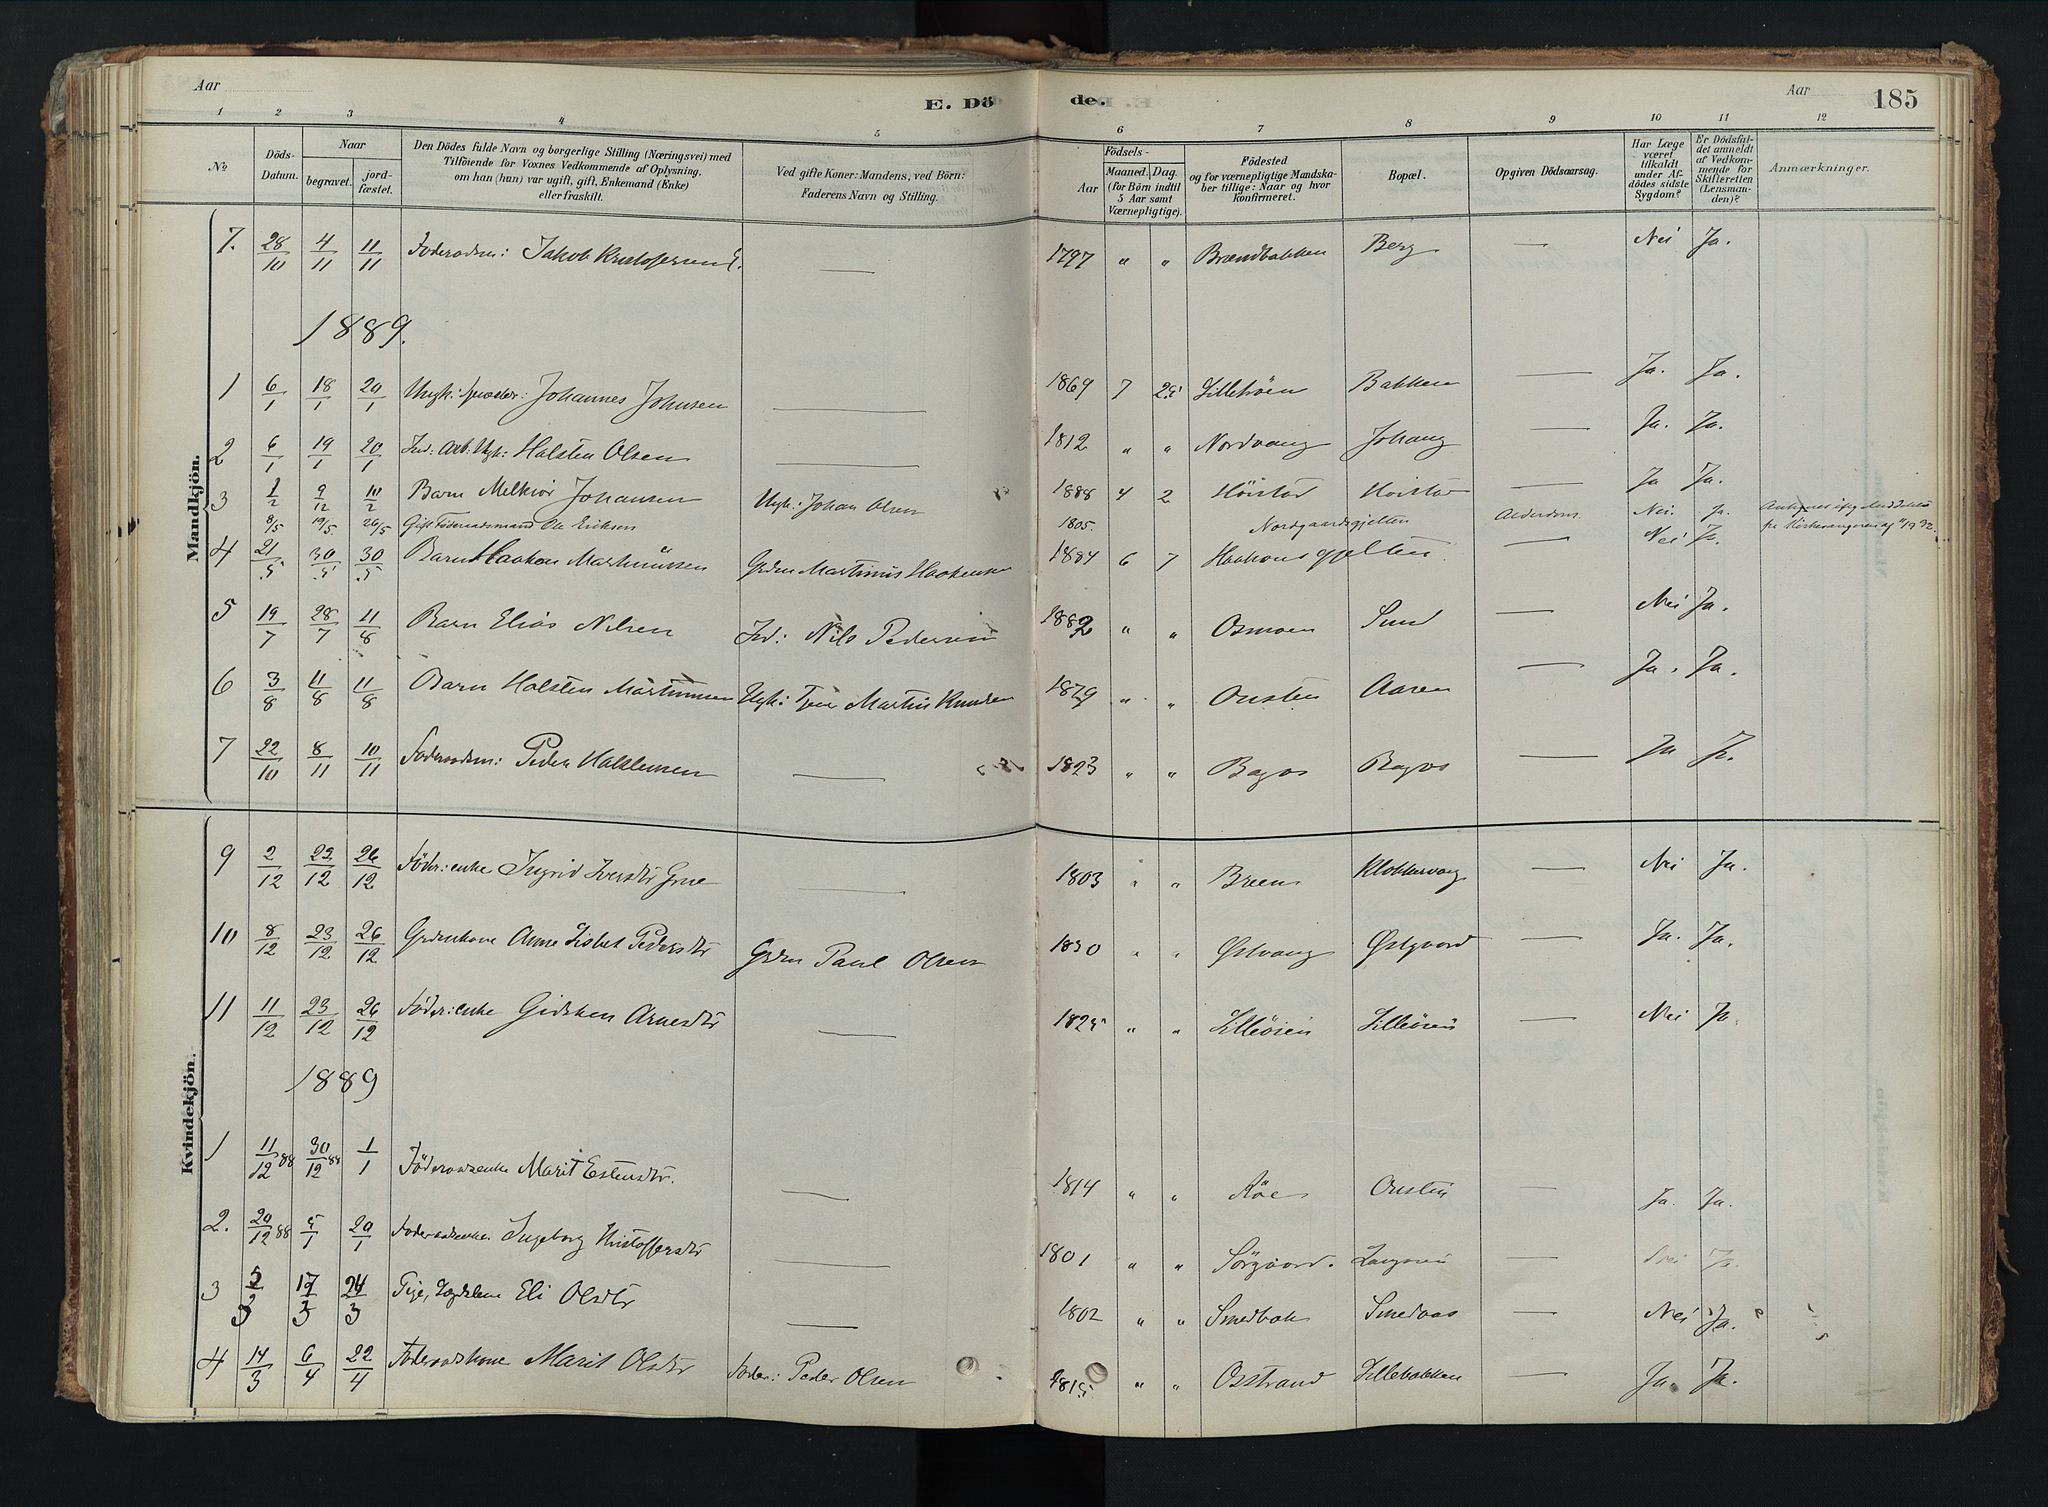 Aar
E. Döde.
Aar
185
1 2 3 4 5 6 7 8 9 10 11 12
No
Döds-Datum.
Naar
begravet.
jordfæstet.
Den Dödes fulde Navn og borgerlige Stilling (Næringsvei) med
Tilföiende for Voxnes Vedkommende af Oplysning,
om han (hun) var ugift, gift, Enkemand (Enke)
eller fraskilt.
Ved gifte Koner: Mandens, ved Börn:
Faderens Navn og Stilling.
Födsels-
Aar
Maaned. Dag.
(for Börn indtil
5 Aar samt
Værnepligtige).
Födested
og for værnepligtige Mandskaber tillige: Naar og hvor
konfirmeret.
Bopæl.
Opgiven Dödsaarsag.
Har Læge
været
tilkaldt
under Afdödes sidste
Sygdom?
Er Dödsfaldet anmeldt
af Vedkommende for
Skifteretten
(Lensmanden)?
Anmærkninger.
Mandkjön.
7. 28/10 4/11 11/11 Foderaadsm: Jakob Kristofersen E. — 1797 " " Brændbakken Berg — Nei Ja.
1889.
1 6/1 18/1 20/1 Ungk: Johannes Johnsen — 1869 7 25 Lillehöen Bakken — Ja. Ja.
2 6/1 19/1 20/1 Ind: Arb: Ungk: Halsten Olsen — 1812 " " Nordvang Johang — Ja. Ja.
3 1/2 9/12 10/2 Barn Melkiör Johansen Ungk: Johan Olsen 1888 4 2 Höistad Hoistad Ja Ja.
8/5 19/5 26/5 Gift Föderaadsmand Ole Eriksen 1805. Nordgaardsgjetten Alderdom. Nei. Ja.
4 21/5 30/5 30/5 Barn Haakon Martinussen Grdm Martinus Haakensen 1884 6 7 Haakonsgjelten — Nei Ja.
5 19/7 28/7 11/8 Barn Elias Nilsen Ind: Nils Pedersen 1882 " " Osmoen Sund — Nei Ja.
6 3/8 11/8 11/8 Barn Halsten Martinusen Ungk: Tjen Martin Knudsen 1879 " " Onsten Aaren — Ja. Ja.
7 22/10 8/11 10/11 Foderaadsm: Peder Halstensen — 1823 " " Bagaas Bagaas — Ja Ja.
Kvindekjön.
9 2/12 23/12 26/12 Föder:enke Ingrid Iversdtr Grue — 1803 " " Breen Klokkervang — Nei Ja.
10 8/12 23/12 26/12 Grdmkone Anne Lisbet Pedersdtr Grdm Paul Olsen 1830 " " Østvang Østgaard — Ja. Ja.
11 11/12 23/12 26/12 Föder:enke Gidsken Arnesdtr — 1825 " " Lilleöien Lilleöien — Nei Ja.
1889
1 11/12 88 30/12 88 1/1 Föderaadsenke Marit Estensdtr. — 1814 " " Röe Onstin — Ja. Ja.
2. 20/12 88 5/1 20/1 Foderaadsenke Ingeborg Kristoffersdtr — 1801 " " Sörgaard. Langöien — Nei Ja.
3 5/3 17/3 24/3 Pige, Eli Olsdtr — 1802 " " Smedbak Smedaas — Nei Ja.
4 14/3 6/4 22/4 Foderaadskone Marit Olsdtr Foder: Peder Olsen 1815 " " Osstrand Lillebakken — Ja. Ja.